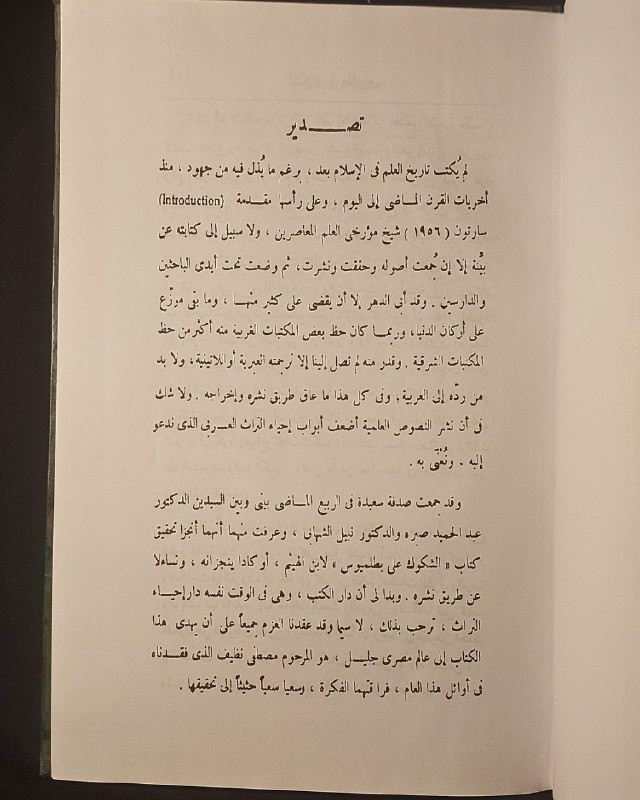 تصـــدير
لم يُكتب تاريخ العلم فى الإسلام بعد ، برغم ما بُذل فيه من جهود ، منذ
أخريات القرن المـاضى إلى اليوم ، وعلى رأسها مقـدمة (Introduction)
سارتون ( ١٩٥٦ ) شيخ مؤرخى العلم المعاصرين ، ولا سبيل إلى كتابته عن
بيِّنة إلا إن جُمعت أصوله وحققت ونشرت، ثم وضعت تحت أيدى الباحثين
والدارسين . وقد أبى الدهر إلا أن يقضى على كثير منهـا ، وما بقى موزّع
على أركان الدنيا، وربمـا كان حظ بعض المكتبات الغربية منه أكثر من حظ
المكتبات الشرقية . وقدر منه لم تصل إلينا إلا ترجمته العبرية أو اللاتينية، ولا بد
من ردّه إلى العربية؛ وفى كل هذا ما عاق طريق نشره وإخراجه . ولا شك
فى أن نشر النصوص العلمية أضعف أبواب إحياء التراث العـربى الذى ندعو
إليه . ونُعْنَى به .
وقد جمعت صدفة سعيدة فى الربيع المـاضى بينى وبين السيدين الدكتور
عبد الحميد صبره والدكتور نبيل الشهابى ، وعرفت منهما أنهما أنجزا تحقيق
كتاب « الشكوك على بطلميوس » لابن الهيثم ، أو كادا ينجزانه ، وتساءلا
عن طريق نشره . وبدا لى أن دار الكتب ، وهى فى الوقت نفسه دار إحيـاء
التراث ، ترحب بذلك ، لا سيما وقد عقدنا العزم جميعاً على أن يهدى هذا
الكتاب إلى عالم مصرى جليـل ، هو المرحوم مصطفى نظيف الذى فقـدناه
فى أوائل هذا العام ، فراقتهما الفكرة ، وسعيا سعياً حثيثاً إلى تحقيقها .